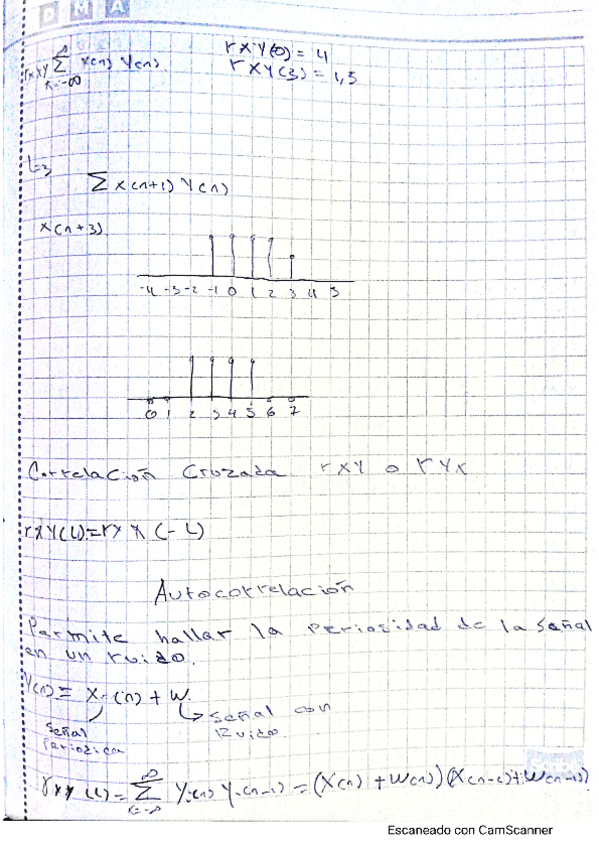 D M A
rxxy ∑ x(n) y(n).
∞
n=-∞
rxy(0) = 4
rxy(3) = 1,5
L=3
∑ x(n+l) y(n)
x(n+3)
-4 -3 -2 -1 0 1 2 3 4 5
0 1 2 3 4 5 6 7
Correlación Cruzada rxy o ryx
rxy(L)=ryx(-L)
Autocorrelación
Permite hallar la periosidad de la señal
en un ruido.
Y(n) = x(n) + w.
Señal con
Ruido.
Señal
Periodica
rxy(l) = ∑ y(n) y(n-l) = (x(n) + w(n))(x(n-l)+w(n-l))
∞
n=-∞
Escaneado con CamScanner